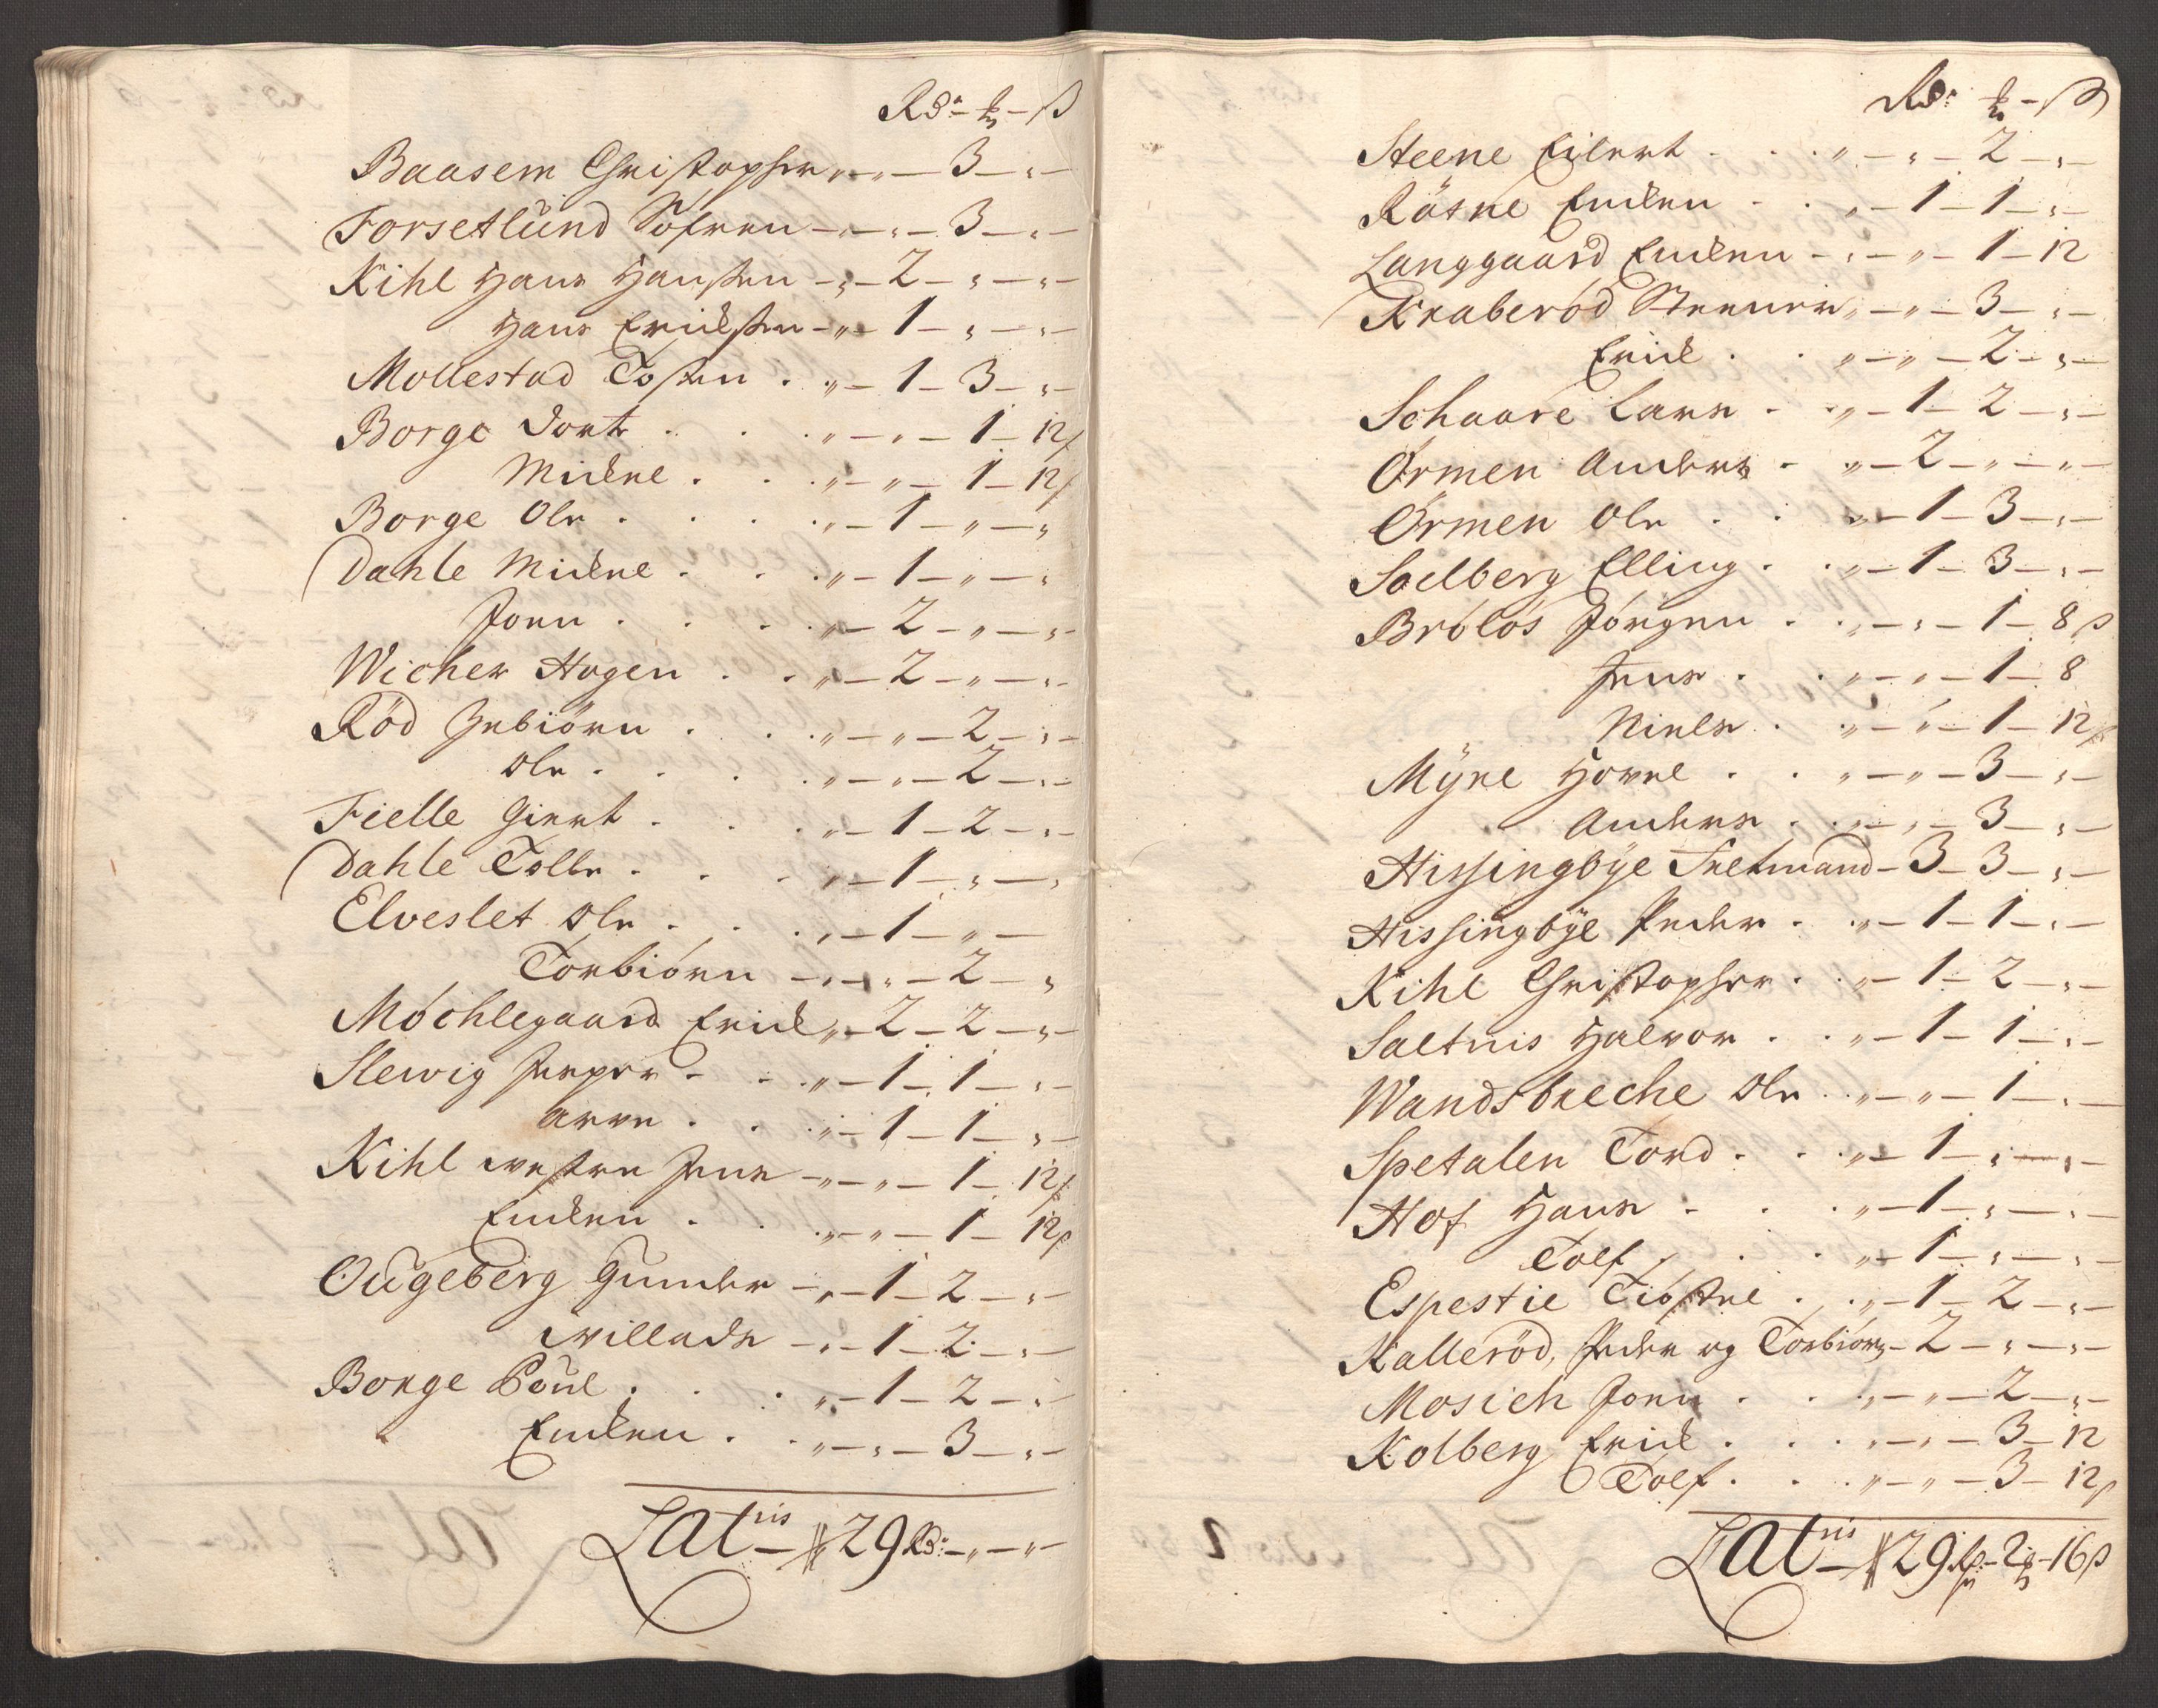 Rdr - ℔ - ß
Baasem Christopher „ - „ - 3 - „ -
Forsetlund Søfren - „ - „ - 3 - „ -
Kihl Hans Hansen - „ - 2 - „ - „ -
Hans Ericksen - „ - 1 - „ - „ -
Mollestad Tosten . „ - 1 - 3 - „ -
Borge Dorte . . . „ - „ - 1 - 12 ß
Mickel . . „ - „ - 1 - 12 ß
Borge Ole . . . . „ - 1 - „ - „
Dahle Mickel . . . „ - 1 - „ - „
Joen . . . „ - 2 - „ - „ -
Wicher Hogen . . „ - 2 - „ - „ -
Röd Gebiörn . . . „ - „ - 2 - „ -
Ole . . . . „ - „ - 2 - „ -
Fielle Giert . . . „ - 1 - 2 - „ -
Dahle Tolle . . . „ - 1 - „ - „
Elveslet Ole . . . „ - 1 - „ -
Torbiörn - „ - „ - 2 - „
Möchlegaard Erick „ - 2 - 2 - „ -
Slewig Jesper . . „ - 1 - 1 - „ -
Arve . . . „ - 1 - 1 - „ -
Kihl westre Jens - „ - „ - 1 - 12 ß
Encken . . „ - „ - 1 - 12 ß
Ougeberg Gunder - „ - 1 - 2 - „ -
Willads - „ - 1 - 2 - „ -
Borge Poul . . . „ - 1 - 2 - „ -
Encken . . „ - „ - 3 - „ -
Latris - 29 Rdr - „ - „ -
Rdr ℔ - ß
Steene Eilert . . . „ - „ - 2 - „ -
Rösne Encken . . „ - 1 - 1 - „ -
Langgaard Encken - „ - „ - 1 - 12
Kraberöd „ - „ - 3 - „ -
Erick . . „ - „ - 2 - „ -
Schaare Lars . . „ - 1 - 2 - „ -
Örmen Anders . „ - 2 - „ - „ -
Örmen Ole . . „ - 1 - 3 - „ -
Soelberg Elling . . „ - 1 - 3 - „ -
Brölös Jörgen . . „ - „ - 1 - 8 ß
Jens . . „ - „ - 1 - 8
Niels . . „ - „ - 1 - 12 ß
Myre . . „ - „ - 3 - „ -
Anders . . „ - „ - 3 - „ -
Hissingbye - 3 - 3 - „ -
Hissingbye Peder . . „ - 1 - 1 - „ -
Kihl Christopher . . „ - 1 - 2 - „ -
Saltnis Halvor . . „ - 1 - 1 - „ -
Wandsbeche Ole . . „ - „ - 1 - „ -
Spetalen Tord . . „ - 1 - „ - „ -
Hof Hans . . . „ - 1 - „ - „ -
Tolf . . . „ - 1 - „ - „ -
Espestie Tiöstel . . „ - 1 - 2 - „ -
Kalleröd, Peder og Torbiörn - 2 - „ - „ -
Mosich Joen . . „ - „ - 2 - „ -
Kolberg Erick . . . „ - „ - 3 - 12
Tolf . . „ - „ - 3 - 12 ß
Latris - 29 Rdr - 2 ℔ - 16 ß